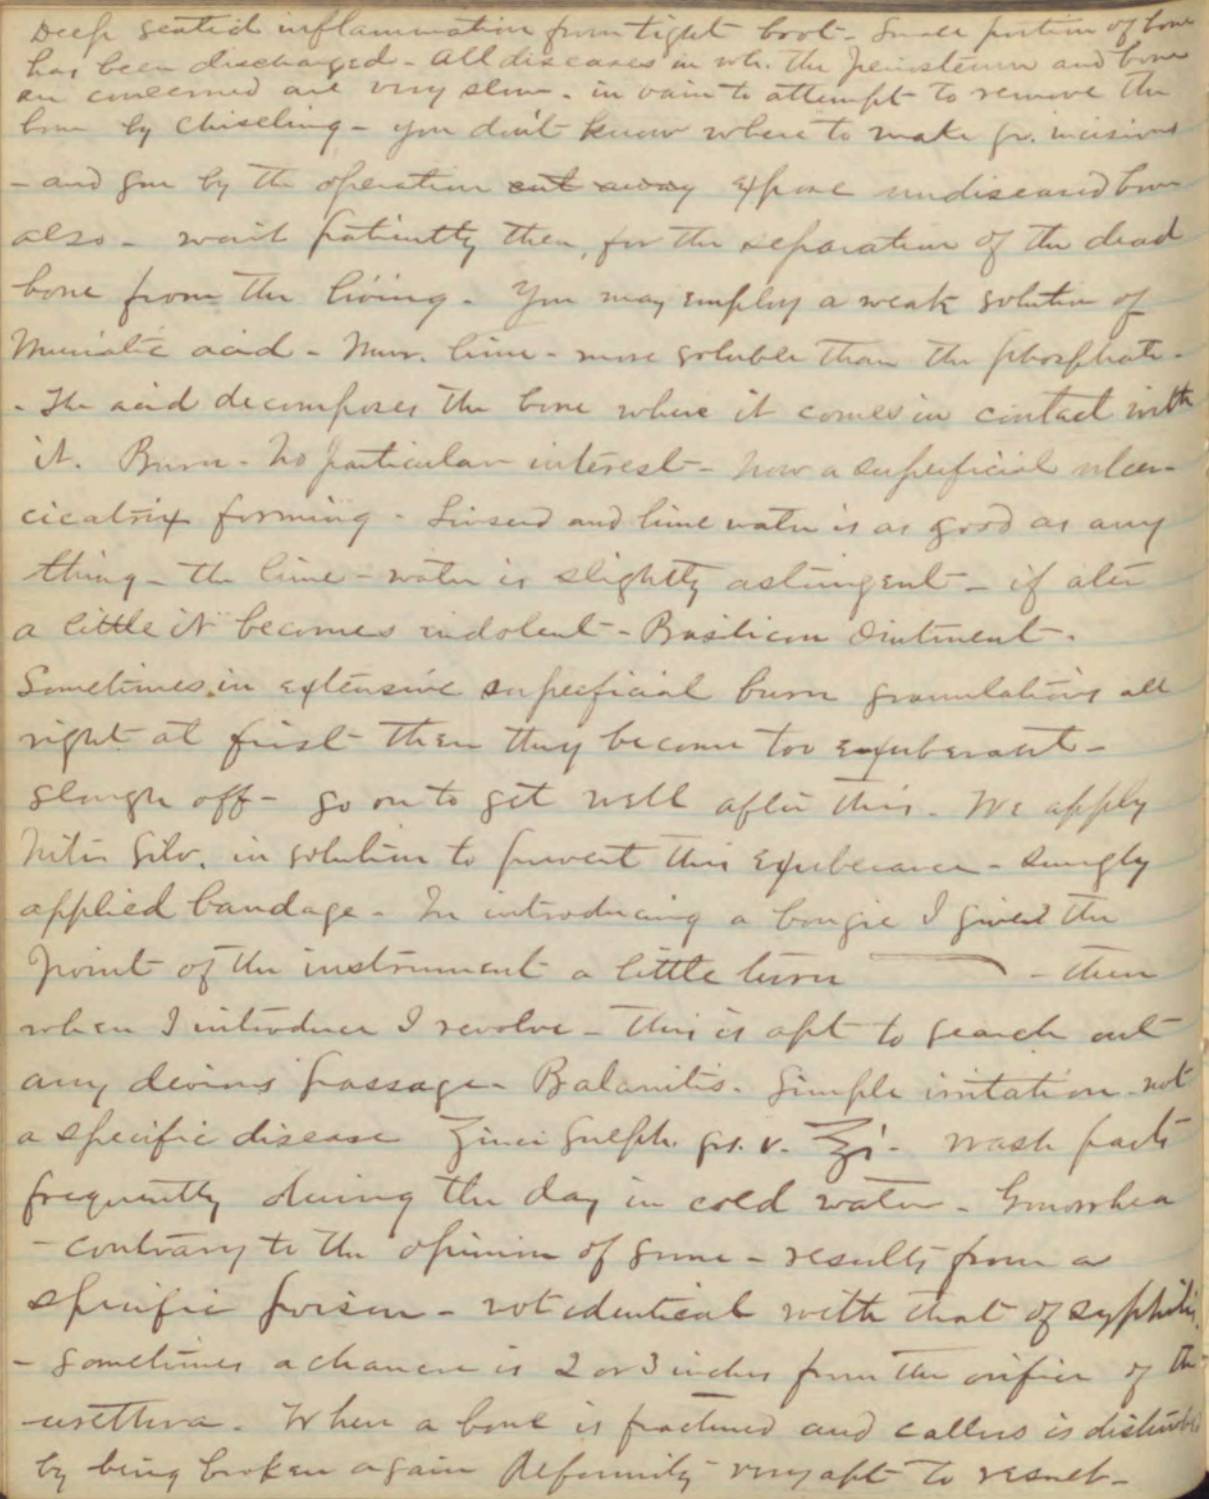 Deep seated inflammation from tight boot - Small portion of bone
has been discharged - All diseases in wh. the periosteum and bone
are concerned are very slow - in vain to attempt to remove the
bone by chiseling - you don't know where to make yr. incisions
- and you by the operation cut away expose undiseased bone
also - wait patiently then, for the separation of the dead
bone from the living. You may employ a weak solution of
Muriatic acid - Mur. lime - more soluble than the phosphate -
- The acid decomposes the bone where it comes in contact with
it. Burn - No particular interest - now a superficial ulcer -
cicatrix forming - Linseed and lime water is as good as any
thing - the lime-water is slightly astringent - if after
a little it becomes indolent - Basilicon Ointment.
Sometimes in extensive superficial burn granulations all
right at first then they become too exuberant -
slough off - go on to get well after this. We apply
Nitr. Silv. in solution to prevent this exuberance - snugly
applied bandage - In introducing a bougie I give the
point of the instrument a little turn - then
when I introduce I revolve - this is apt to search out
any devious passage - Balanitis. Simple irritation - not
a specific disease Zinci Sulph. grs. v. ℥i - wash parts
frequently during the day in cold water - Gonorrhea
- contrary to the opinion of some - results from a
specific poison - not identical with that of syphilis.
- Sometimes a chancre is 2 or 3 inches from the orifice of the
urethra. When a bone is fractured and callus is disturbed
by being broken again deformity very apt to result -